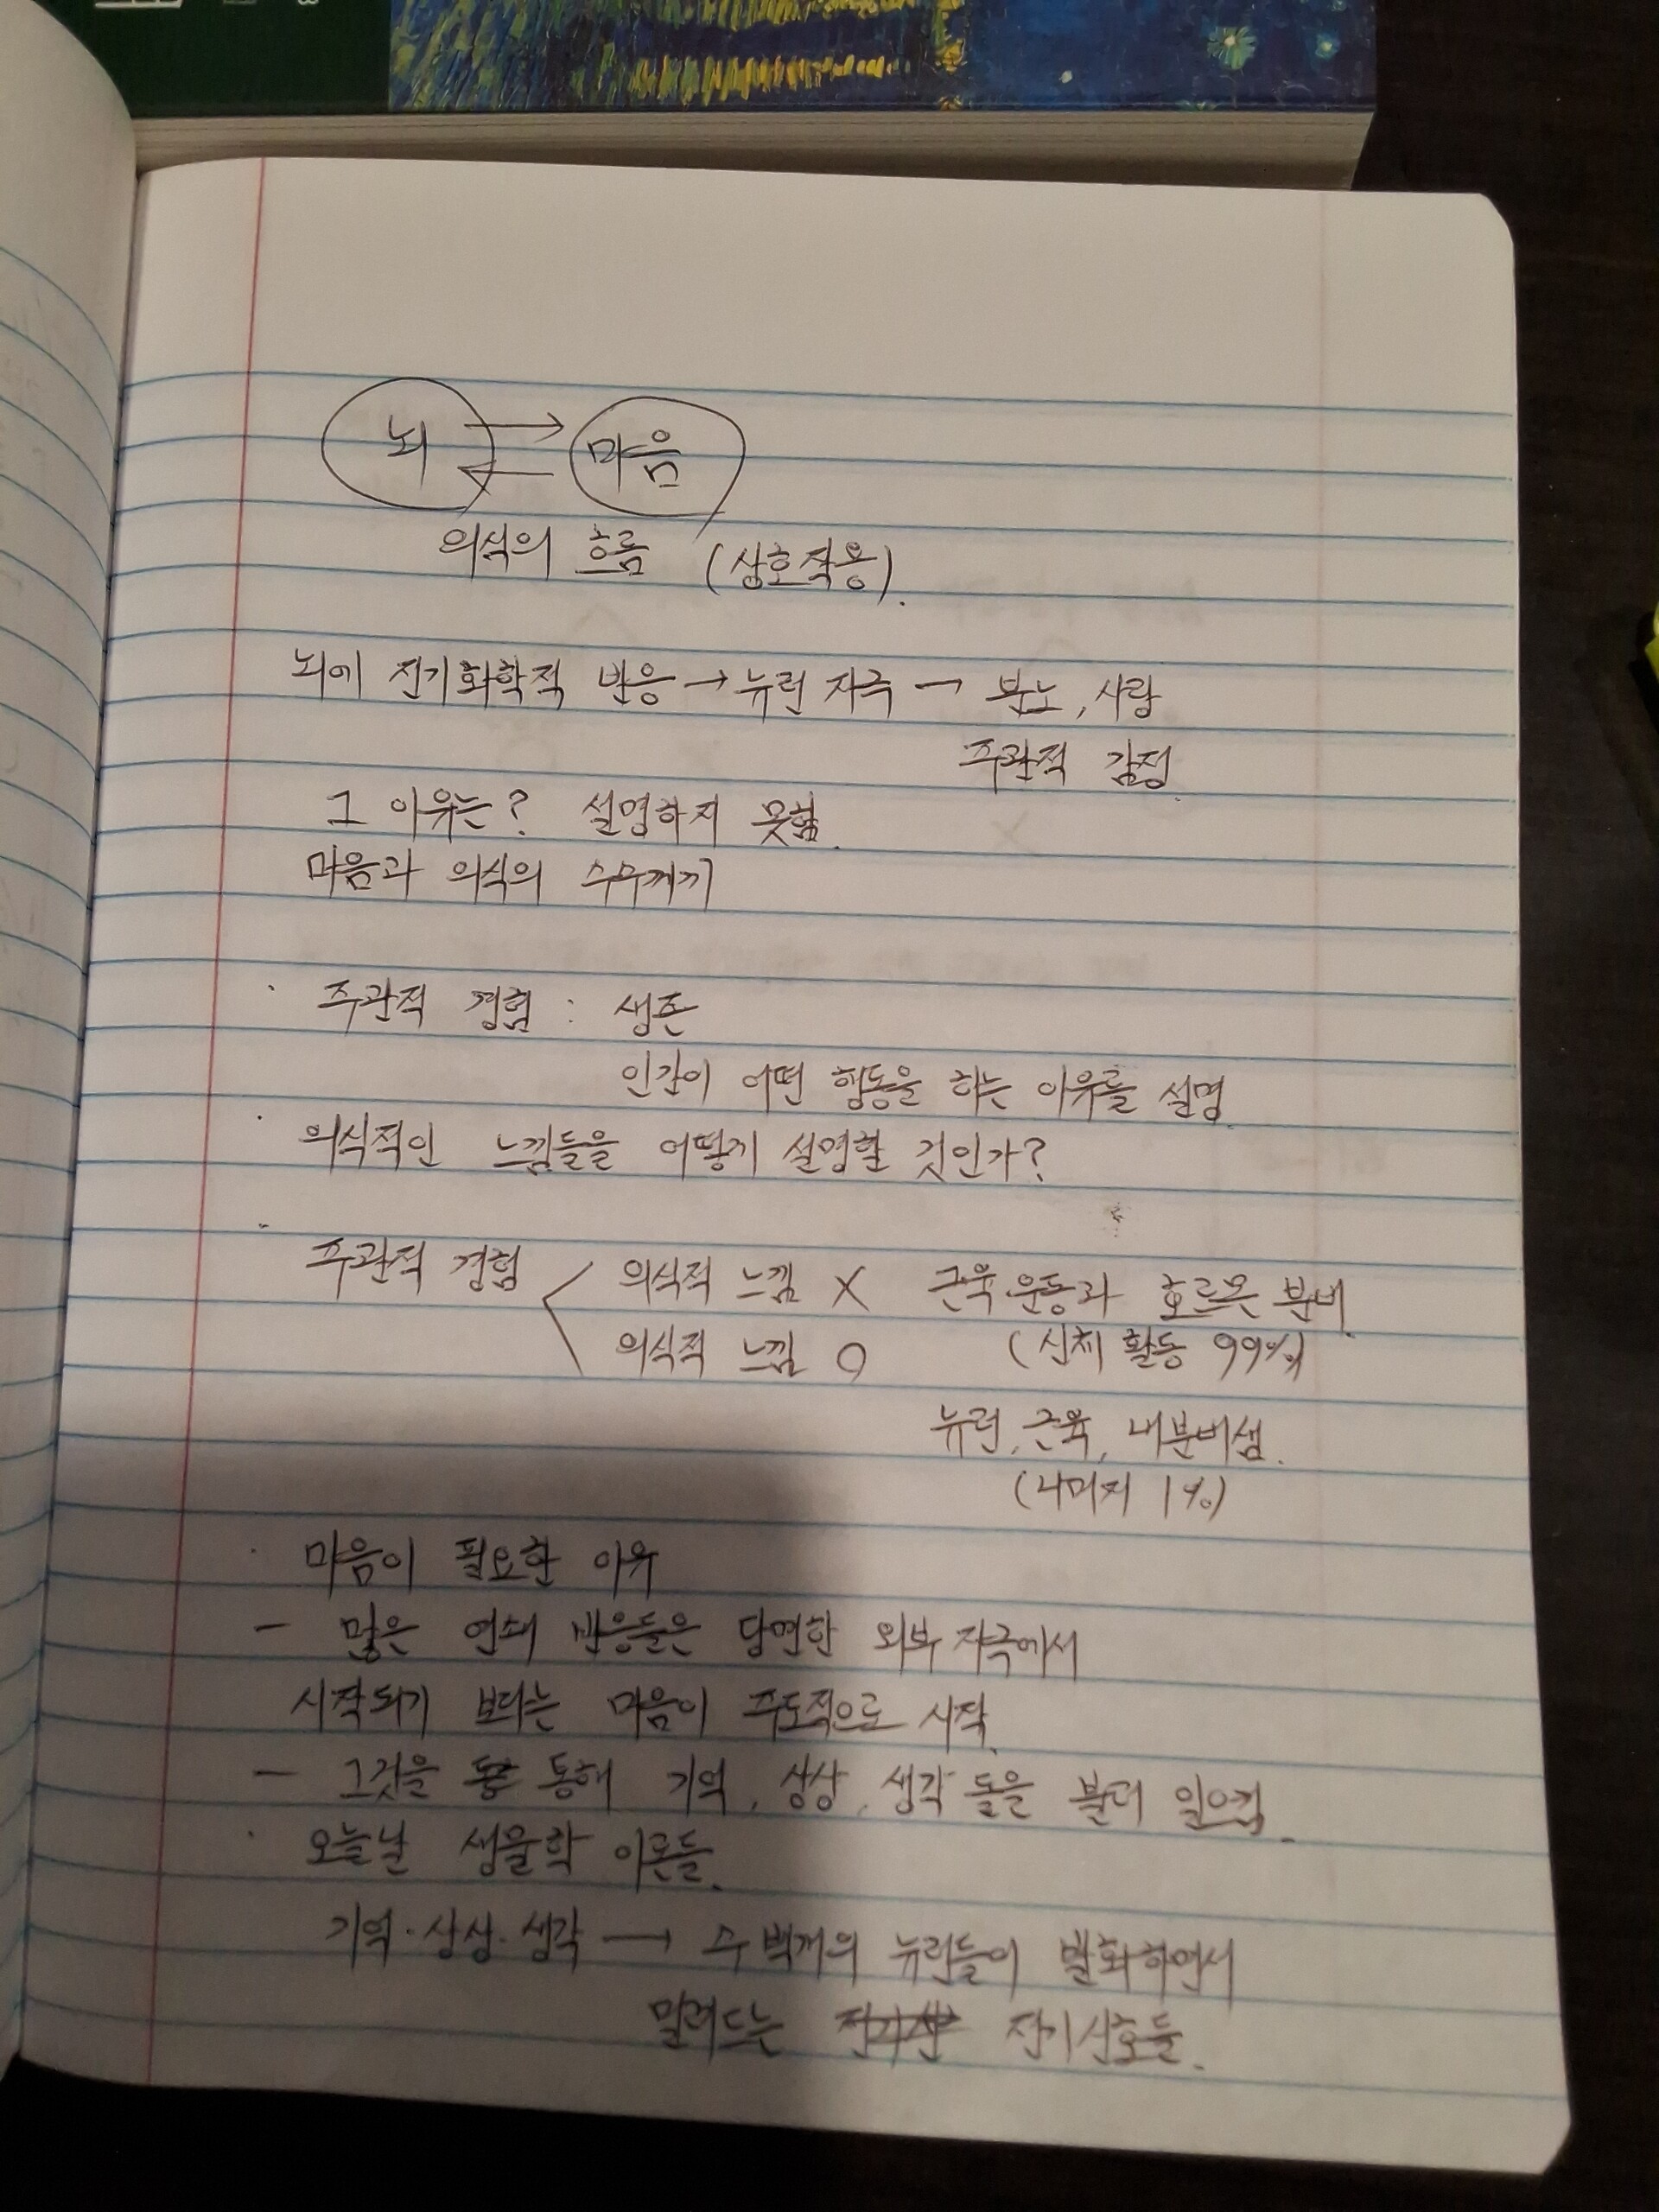 뇌 → ← 마음
의식의 흐름 (상호작용).
뇌에 전기화학적 반응 → 뉴런 자극 → 분노, 사랑
주관적 감정.
그 이유는? 설명하지 못함.
마음과 의식의 수수께끼
· 주관적 경험 : 생존
인간이 어떤 행동을 하는 이유를 설명.
· 의식적인 느낌들을 어떻게 설명할 것인가?
· 주관적 경험 < 의식적 느낌 X 근육 운동과 호르몬 분비.
의식적 느낌 O (신체 활동 99%)
뉴런, 근육, 내분비샘.
(나머지 1%)
· 마음이 필요한 이유
- 많은 연쇄 반응들은 당면한 외부 자극에서
시작되기 보다는 마음이 주도적으로 시작.
- 그것을 통해 기억, 상상, 생각 들을 불러 일으킴.
· 오늘날 생물학 이론들.
기억·상상·생각 → 수 백개의 뉴런들이 발화하면서
밀려드는 전기신호들.